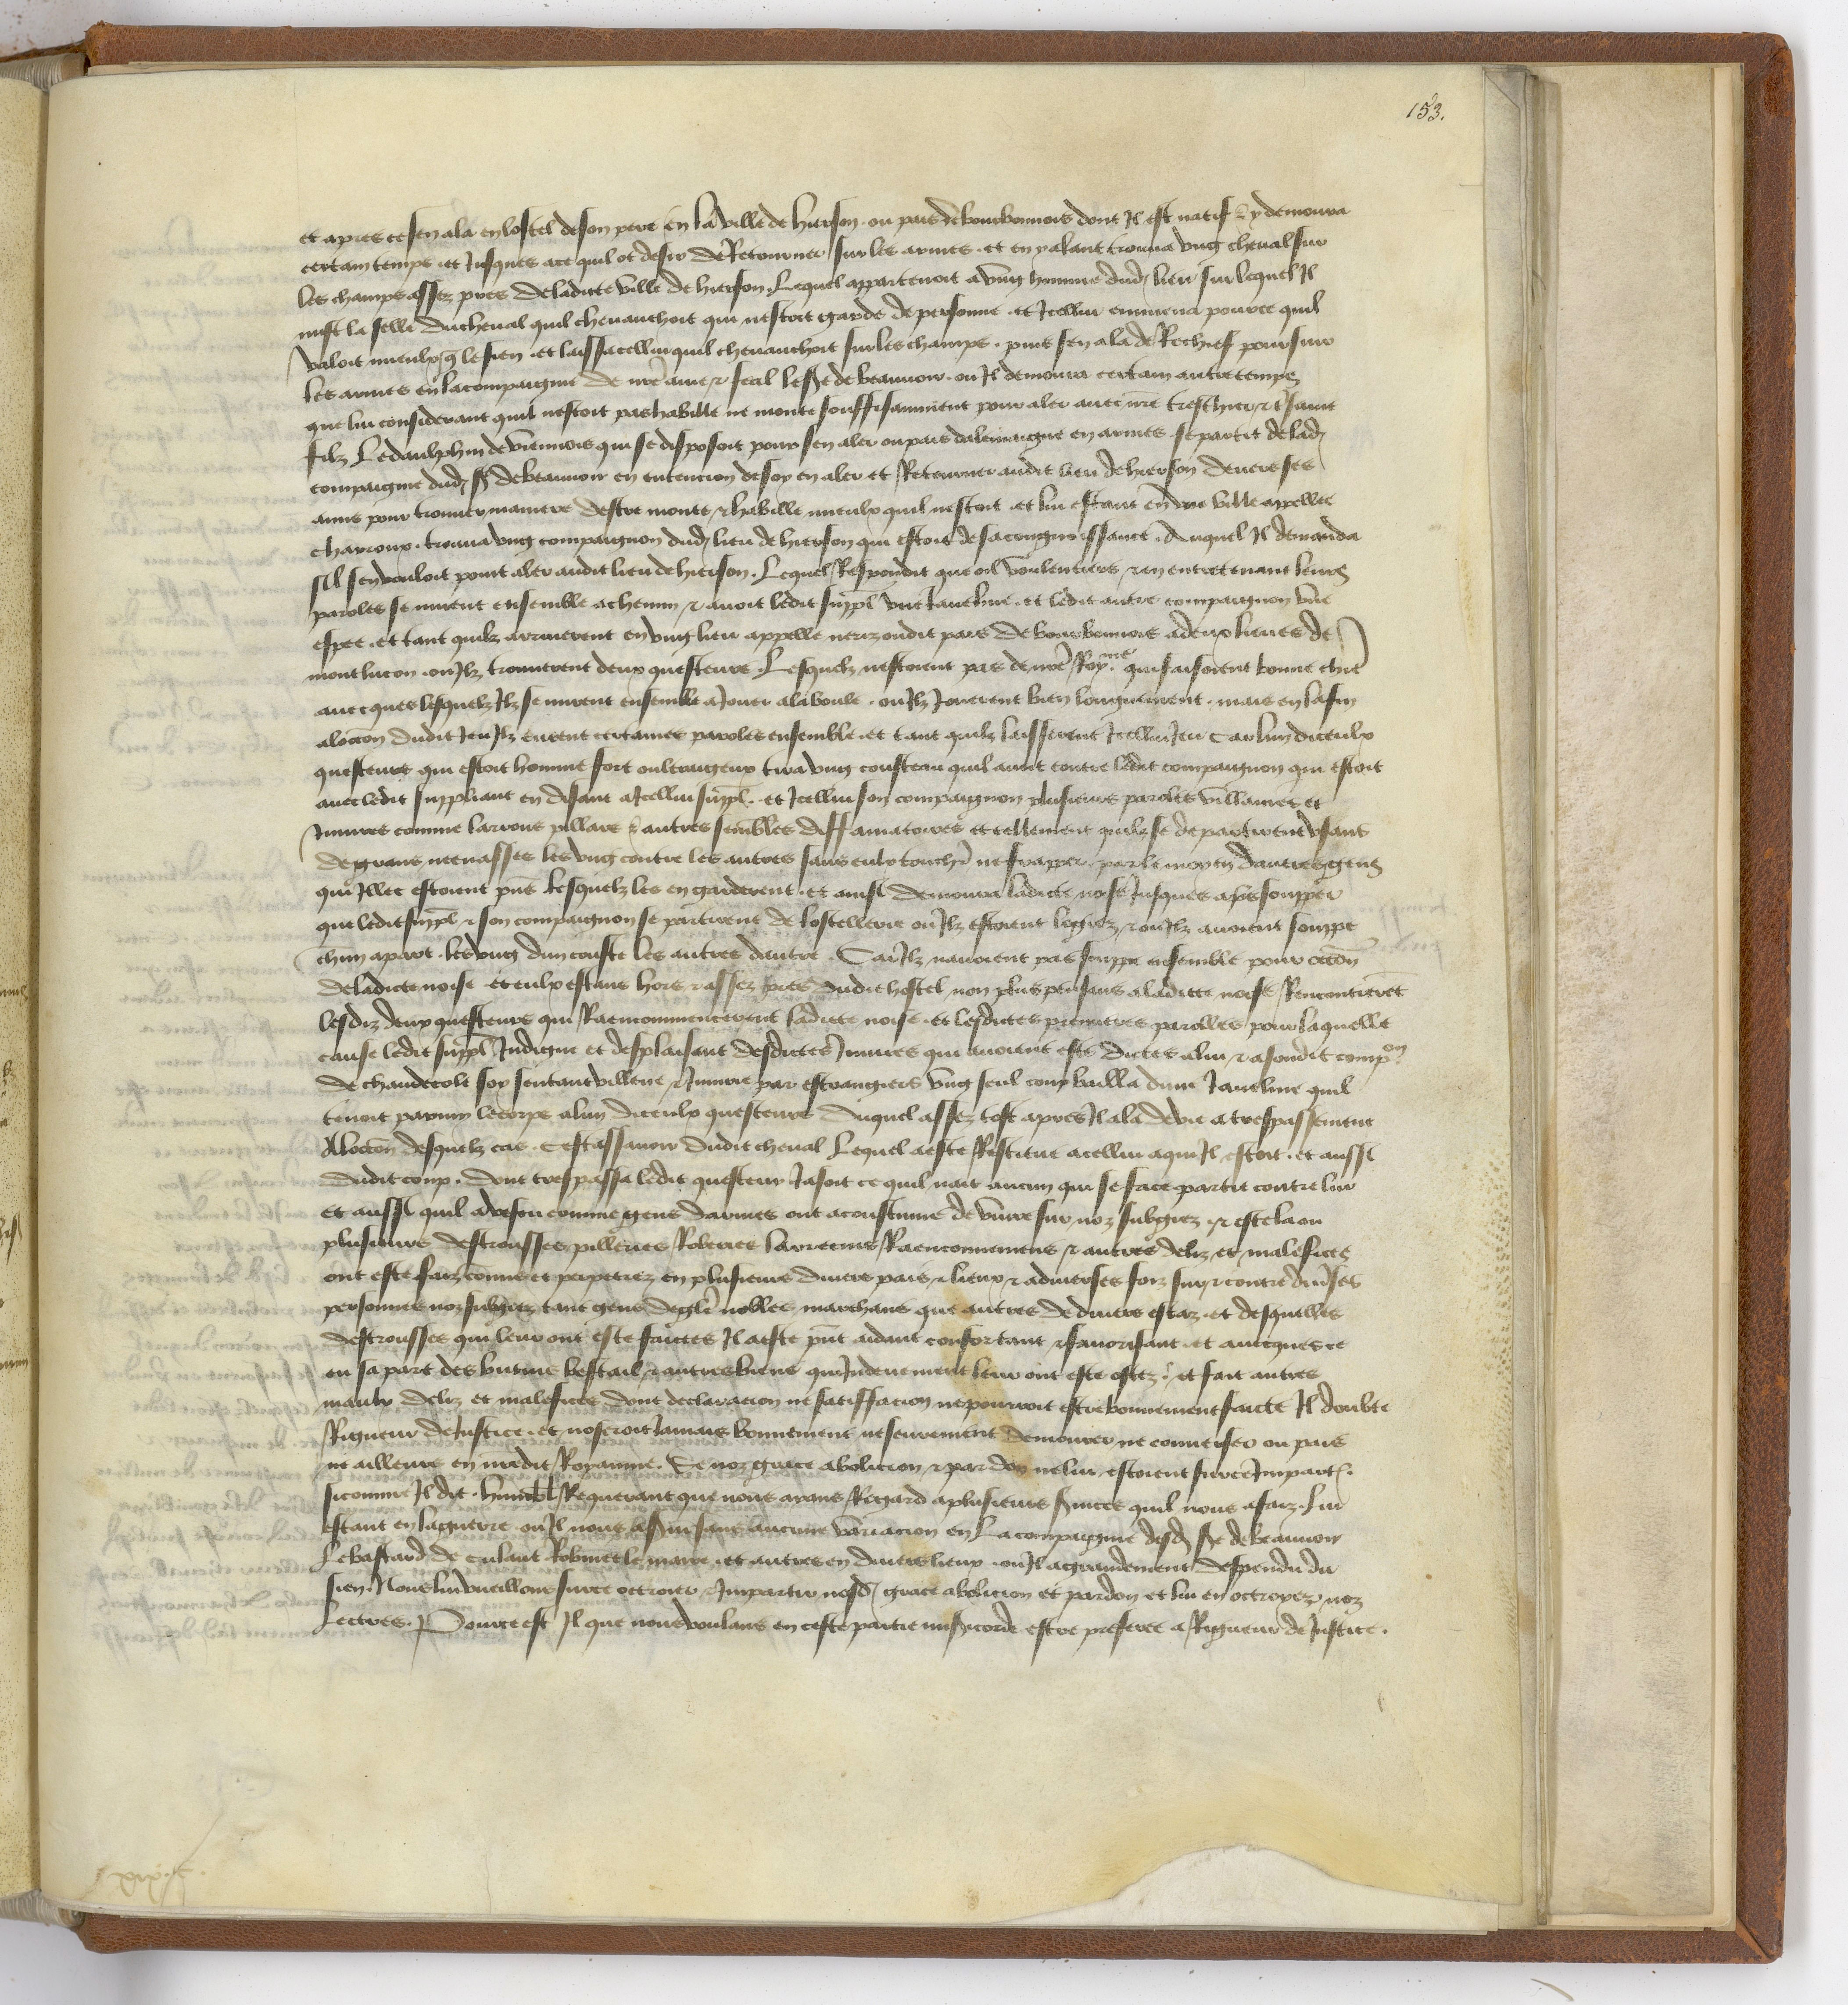 153.
et apres ce sen ala en lostel de son pere en la ville de hierson ou pais de bourbonnois dont Il est natif & y demoura
certain temps et Jusques ace quil ot desir de Retourner sur les armes . et en y alant trouva ung cheval sur
les champs assez pres de ladicte ville de hierson . Lequel appartenoit a ung homme dud lieu sur lequel Il
mist la selle du cheval quil chevauchoit qui nestoit garde de personne . et Icellui enmena pource quil
valoit mieulx q̄ le sien . et laissa cellui quil chevauchoit sur les champs . puis sen ala de Rechief poursuir
les armes en la compaignie de nr̄e ame & feal le sr̄e de beauvoir . ou Il demoura certain autre temps
que lui considerant quil nestoit pas habille ne monte souffisamment pour aler avec nr̄e treschier & tsame
filz Le daulphin de viennois qui se disposoit pour sen aler ou pais dalemaigne en armes . se partit de lad
compaignie dud sr̄ de beauvoir en entencion de soy en aler et Retourner audit lieu de hierson devers ses
amis pour trouver maniere destre monte & habille mieulx quil nestoit . et lui estant en une ville appellee
charroux . trouva ung compaignon dud lieu de hierson qui estoit de sa congnoissance . Auquel Il demanda
sil sen vouloit point aler audit lieu de hierson . Lequel Respondit que oil voulentiers & en entretenant leurs
paroles se mirent ensemble a chemin & avoit ledit suppl̄ une Javeline . et ledit autre compaignon une
espee . et tant quilz arriverent en ung lieu appelle neriz oudit pais de bourbonnois a deux lieues de
montlucon . ou Ilz trouverent deux questeurs . Lesquelz nestoient pas de nr̄e Roy.me qui faisoient bonne chie
avecques lesquelz Ilz se mirent ensemble a Jouer a la boule . ou Ilz Jouerent bien longuement . mais en la fin
a locc̄on dudit Jeu Ilz eurent certaines paroles ensemble . et tant quilz laisserent Icellui Jeu . Car lun diceulx
questeurs qui estoit homme fort oultrageux tira ung cousteau quil avoit contre ledit compaignon qui estoit
avec ledit suppliant en disant a Icellui suppl̄ . et Icellui son compaignon plusieurs paroles villaines et
Injures comme larrons pillars & autres sembles diffamatoires et tellement quilz se departirent usans
de grans menasses les ung contre les autres sans eulx touch̄r ne frapper par le moyen dautres gens
qui Illec estoient pn̄s . lesquelz les en garderent . et ainsi demoura ladicte noise Jusques ap̄s soupper
que ledit suppl̄ & son compaignon se partirent de lostellerie ou Ilz estoient logiez & ou Ilz avoient souppe
ch̄un apart . les ung dun couste les autres dautre . Car Ilz navoient pas souppe ensemble pour occ̄on
de ladicte noise . et eulx estans hors & assez pres dudit hostel non plus pensans a ladicte noise Rencontrerēt
lesdiz deux questeurs qui Raencommencerent ladicte noise . et lesdictes premieres parolles pour laquelle
cause ledit suppl̄ Indigne et desplaisant desdictes Injures qui avoient este dictes a lui & a sondit comp.on
de chaudecole soy sentant villene & Injurie par estrangiers ung seul coup bailla dune Javeline quil
tenoit parmy le corps a lun diceulx questeurs duquel assez tost apres Il ala de vie a trespassement
A locc̄on desquelz cas . Cest assavoir dudit cheval Lequel a este Restitue a cellui a qui Il estoit . et aussi
dudit coup . dont trespassa ledit questeur Jasoit ce quil nait aucun qui se face partie contre lui
et aussi quil a vescu comme gens darmes ont acoustume de vivre sur noz subgiez . & este la ou
plusieurs destrousses pilleries Roberies larrecins Raenconnemens & autres deliz et malefices
ont este faiz com̄is et perpetrez en plusieurs divers pais & lieux & a diverses foiz sur & contre div̄ses
personnes noz subgiez tant gens degl̄ie nobles marchans que autres de divers estaz . et desquelles
destrousses qui leur ont este faictes Il a este pn̄t aidant confortant & favorisant . et avecques ce
eu sa part des butins bestail & autres biens qui Induement leur ont este ostez . et fait autres
maulx deliz et malefices dont declaracion ne satiffacion ne pourroit estre bonnement faicte Il doubte
Rigueur de Justice . et noseroit Jamais bonnement ne seurement demourer ne converser ou pais
ne ailleurs en nr̄edit Royaume . Se noz grace abolicion & pardon ne lui estoient sur ce Imparti .
sicomme Il dit . humblt Requerant que nous ayans Regard a plusieurs s̄vices quil nous a faiz . Lui
estant en la guerre ou Il nous a s̄vi sans aucune variacion en La compaignie desd sr̄e de beauvoir
Le bastard de culant Robinet le maire . et autres en divers lieux . ou Il a grandement despendu du
sien . Nous lui vueillons sur ce octroier & Impartir nosd grace abolicion et pardon et lui en octroyez noz
Lectres . Pource est Il que nous voulans en ceste partie mis̄icorde estre preferee a Rigueur de Justice .